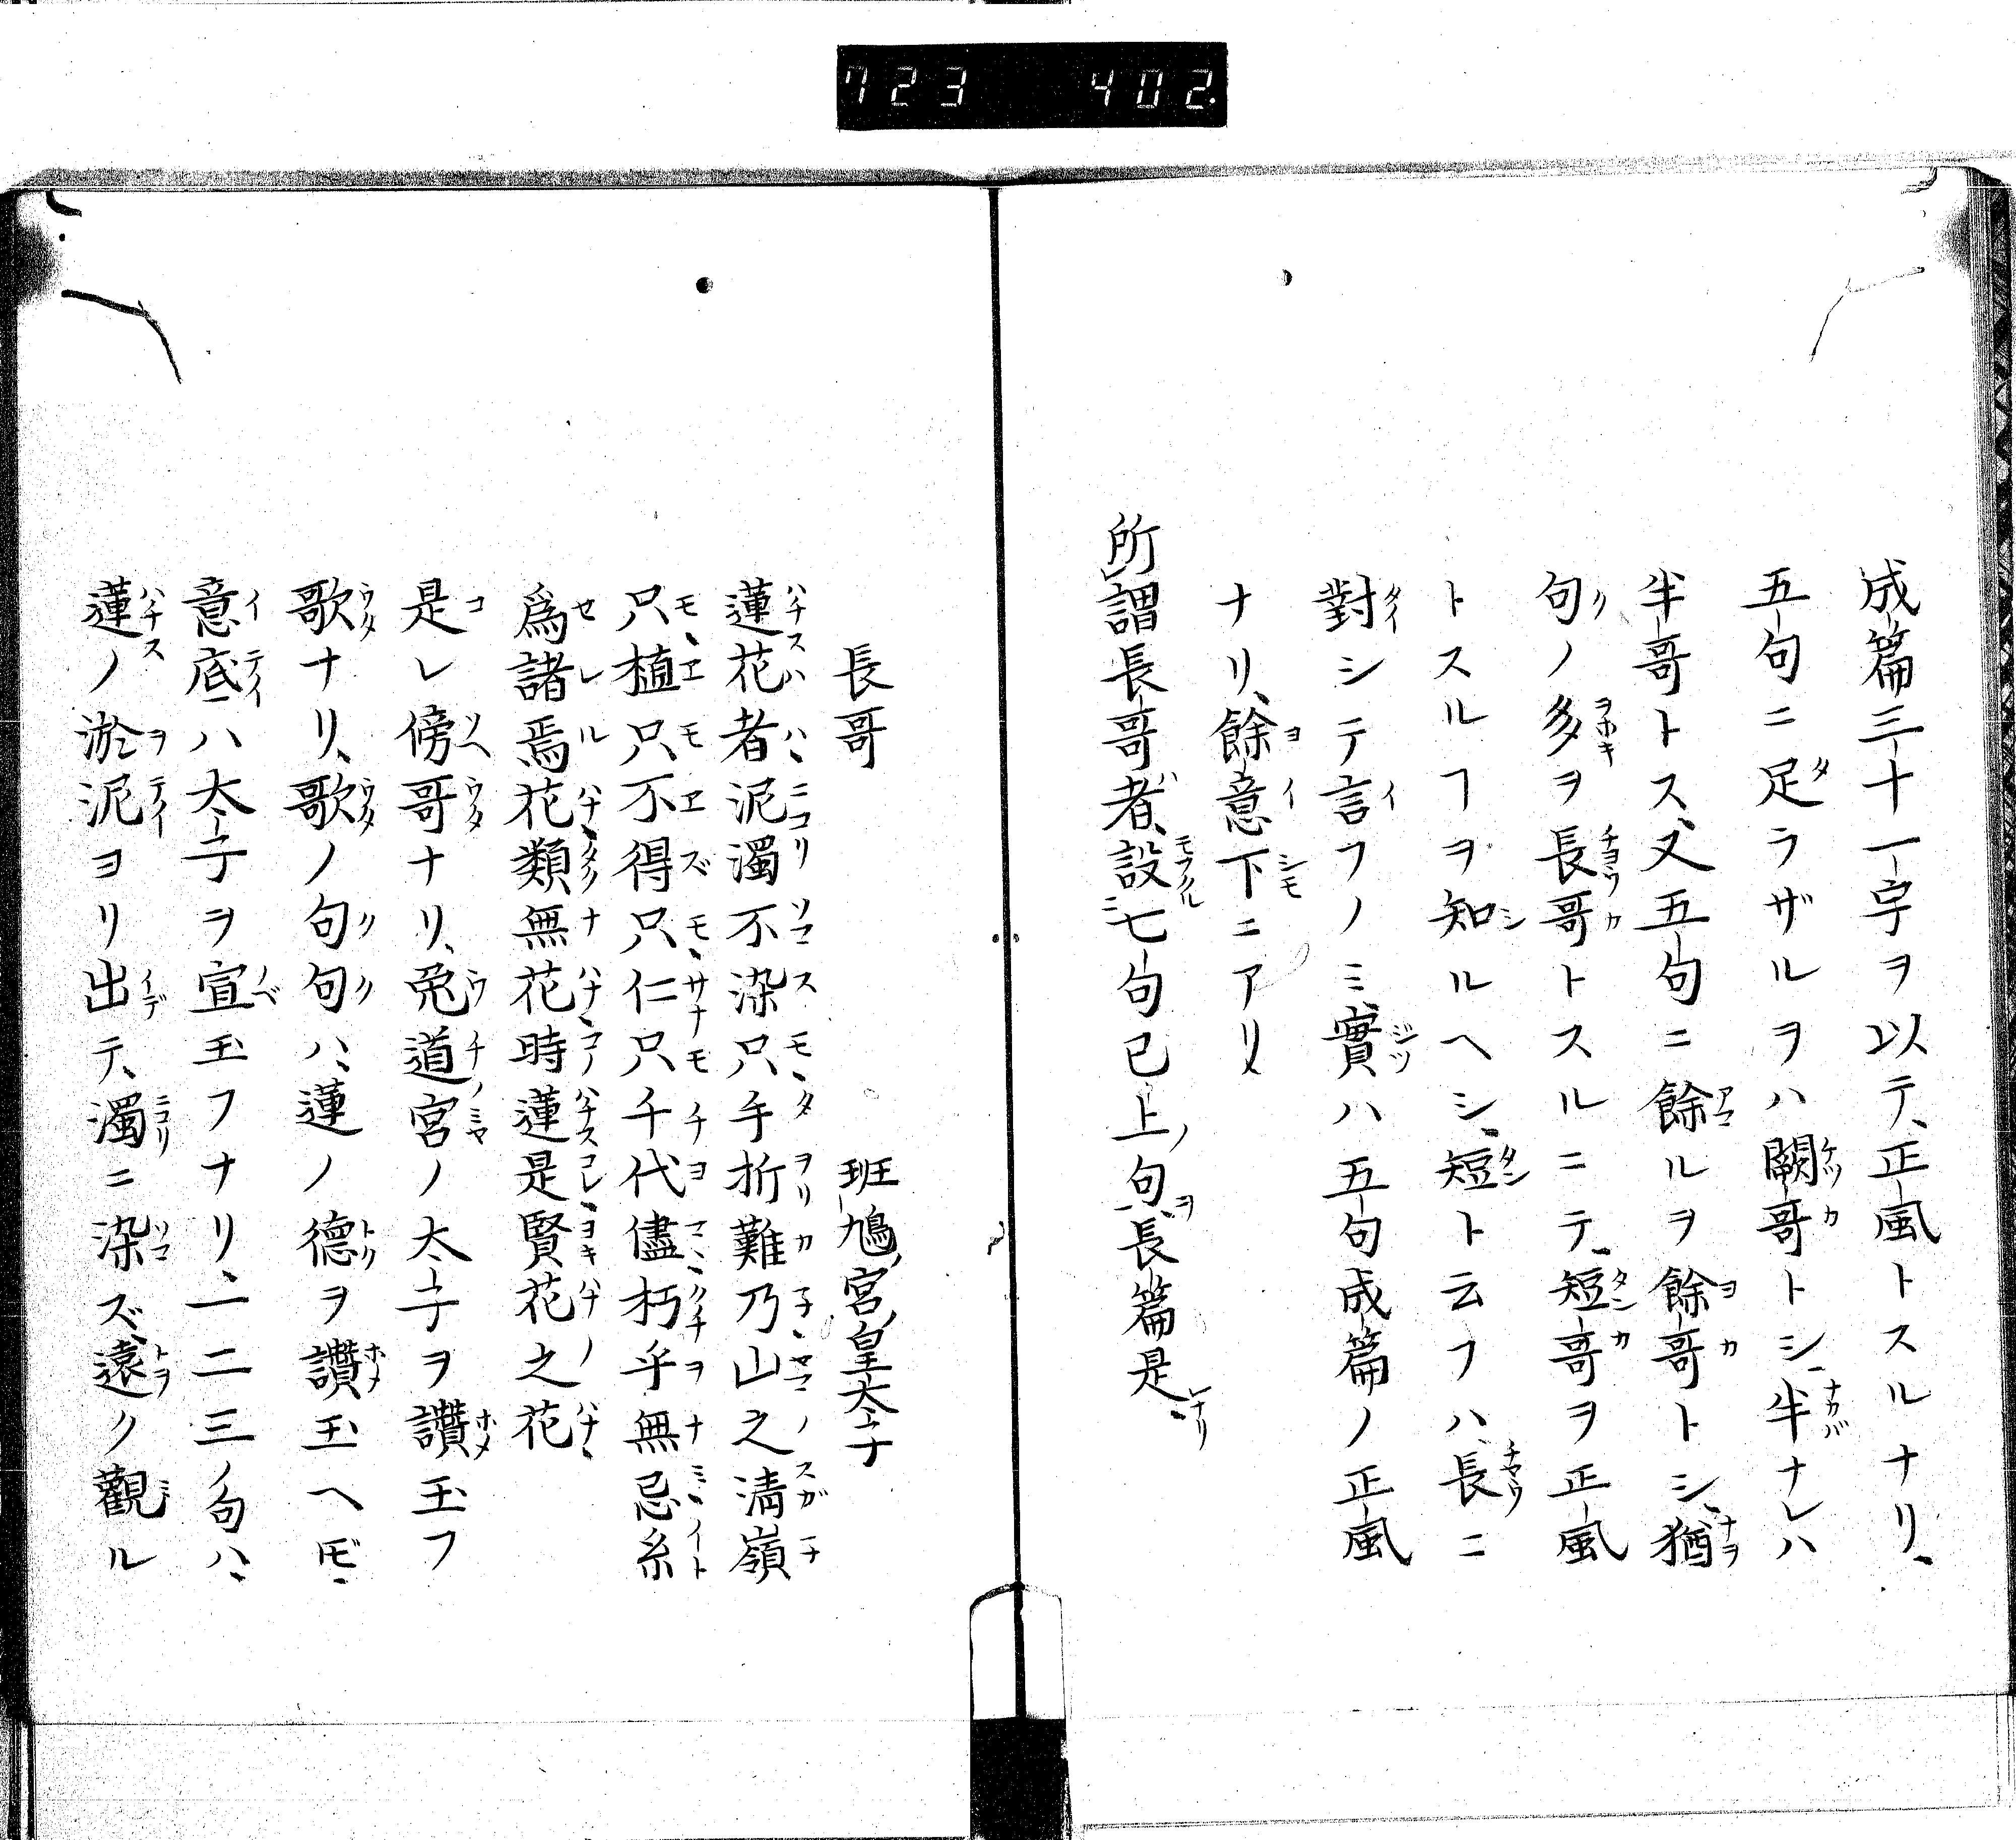 723 402.
成篇三十一字ヲ以テ、正風トスルナリ、
五句ニ足ラザルヲハ闕哥トシ、半ナレハ
半哥トス、又五句ニ餘ルヲ餘哥トシ、猶
句ノ多ヲ長哥トスルニテ、短哥ヲ正風
トスルヿヲ知ルヘシ、短ト云フハ、長ニ
對シテ言フノミ、實ハ五句成篇ノ正風
ナリ、餘意下ニアリ
所謂長哥者、設七句已上句、長篇是、
長哥 班鳩宮皇太子
蓮花者泥濁不染只手折難乃山之淸嶺
只植只不得只仁只千代儘朽乎無忌糸
爲諸焉花類無花時蓮是賢花之花
是レ傍哥ナリ、兎道宮ノ太子ヲ讚玉フ
歌ナリ、歌ノ句句ハ、蓮ノ德ヲ讚玉ヘ𪜈、
意底ハ太子ヲ宣玉フナリ、一二三ノ句ハ、
蓮ノ淤泥ヨリ出テ、濁ニ染ズ、遠ク觀ル